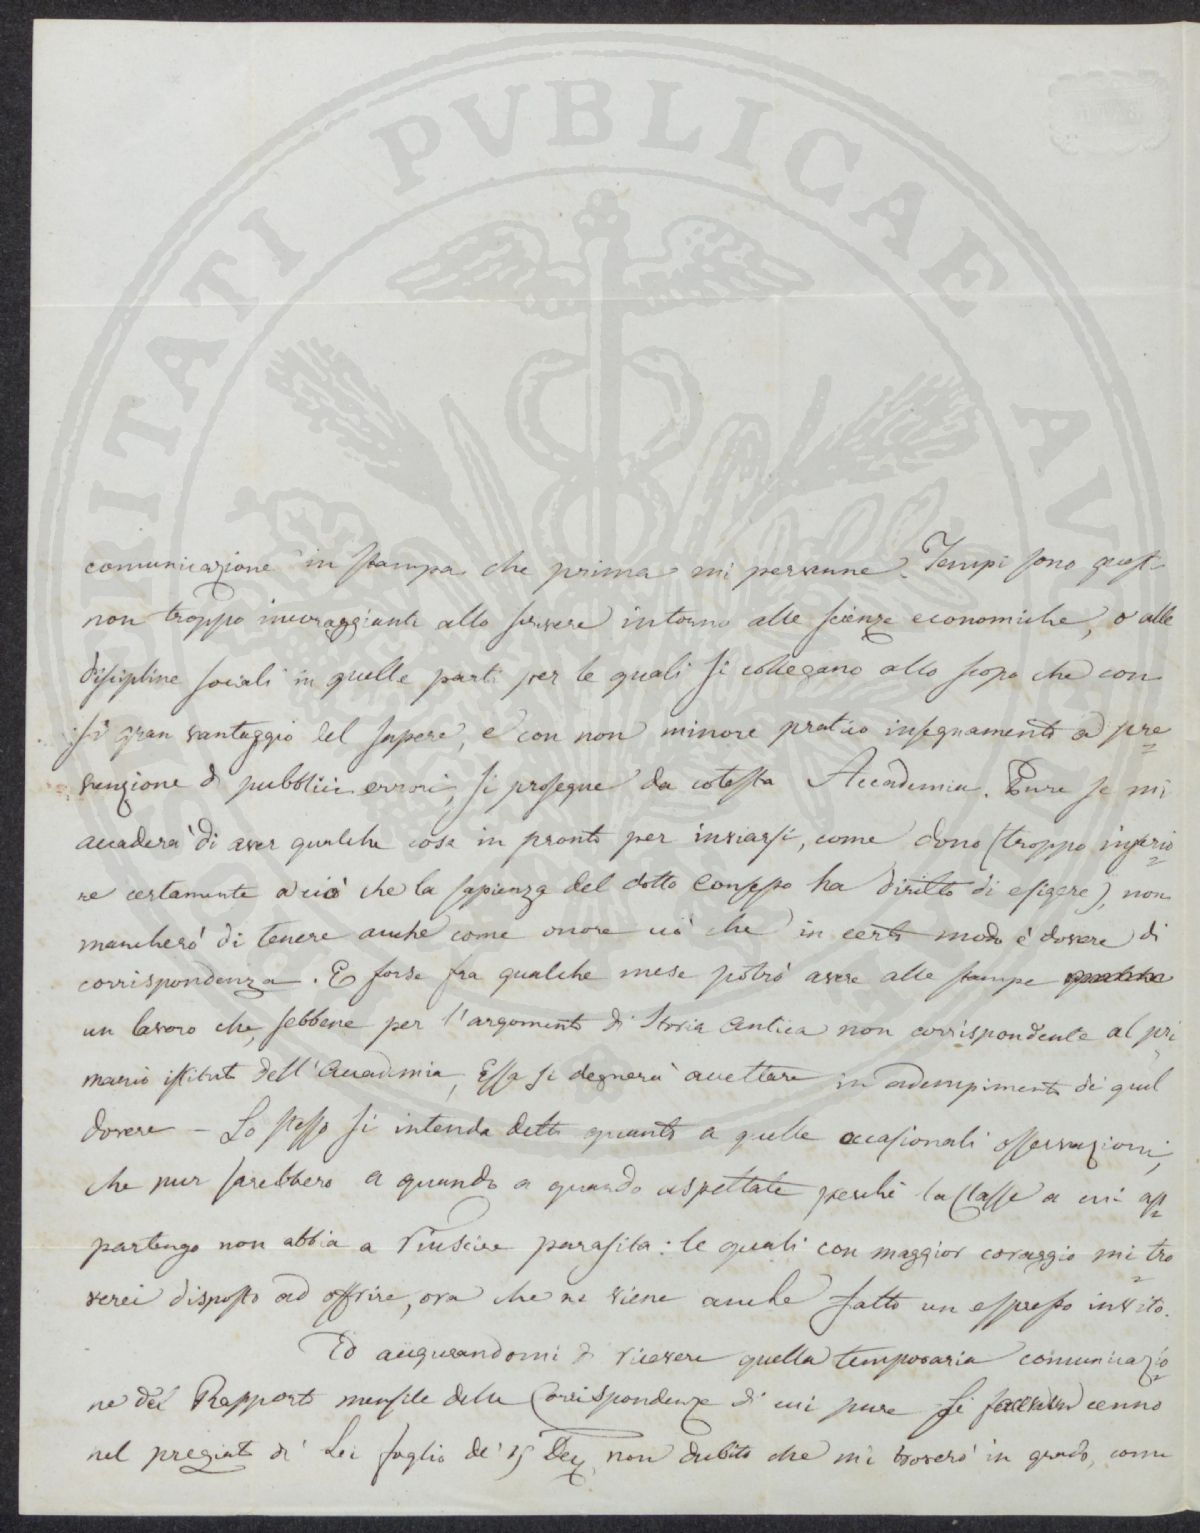 PROSPERITATI PVBLICAE AVGENDAE
comunicazione in stampa che prima mi pervenne. Tempi sono questi
non troppo incoraggianti allo scrivere intorno alle scienze economiche, o alle
discipline sociali in quelle parti per le quali si collegano allo scopo che con
si gran vantaggio del sapere, e con non minore pratico insegnamento a pre
venzione di pubblici errori, si prosegue da cotesta Accademia. Pure se mi
accaderà di aver qualche cosa in pronto per inviarsi, come dono (troppo inferio
re certamente a ciò che la sapienza del dotto Consesso ha diritto di esigere), non
mancherò di tenere anche come onore ciò che in certo modo è dovere di
corrispondenza. E forse fra qualche mese potrò avere alle stampe
un lavoro che, sebbene per l'argomento di Storia antica non corrispondente al pri
mario istituto dell'Accademia, Essa si degnerà accettare in adempimento di quel
dovere – Lo stesso si intenda detto quanto a quelle occasionali osservazioni,
che pur sarebbero a quando a quando aspettate perchè la Classe a cui ap
partengo non abbia a riuscire parasita: le quali con maggior coraggio mi tro
verei disposto ad offrire, ora che ne viene anche fatto un espresso invito.
Ed augurandomi di ricevere quella temporaria comunicazio
ne del Rapporto mensile delle Corrispondenze di cui pure si cenno
nel pregiato di Lei foglio de' 15 non dubito che mi troverò in grado, come